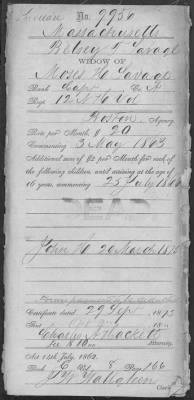 No. 9956
Massachusetts
Betsey T. Savage
WIDOW OF
Moses H. Savage
Rank Capt. Co. A
Regt. 12 N H Vol
Boston, Agency
Rate per Month $ 20
Commencing 3 May 1863
Additional sum of $2 per Month for each of
the following children, until arriving at the age of
16 years, commencing 25 July 1866
DEAD
John H. 20 March 1875
Certificate dated 29 Sept.
Sent
Charles
Fee $10 Attorney.
Act 14th July, 1862.
Book E Vol. 8 Page 166
Clerk